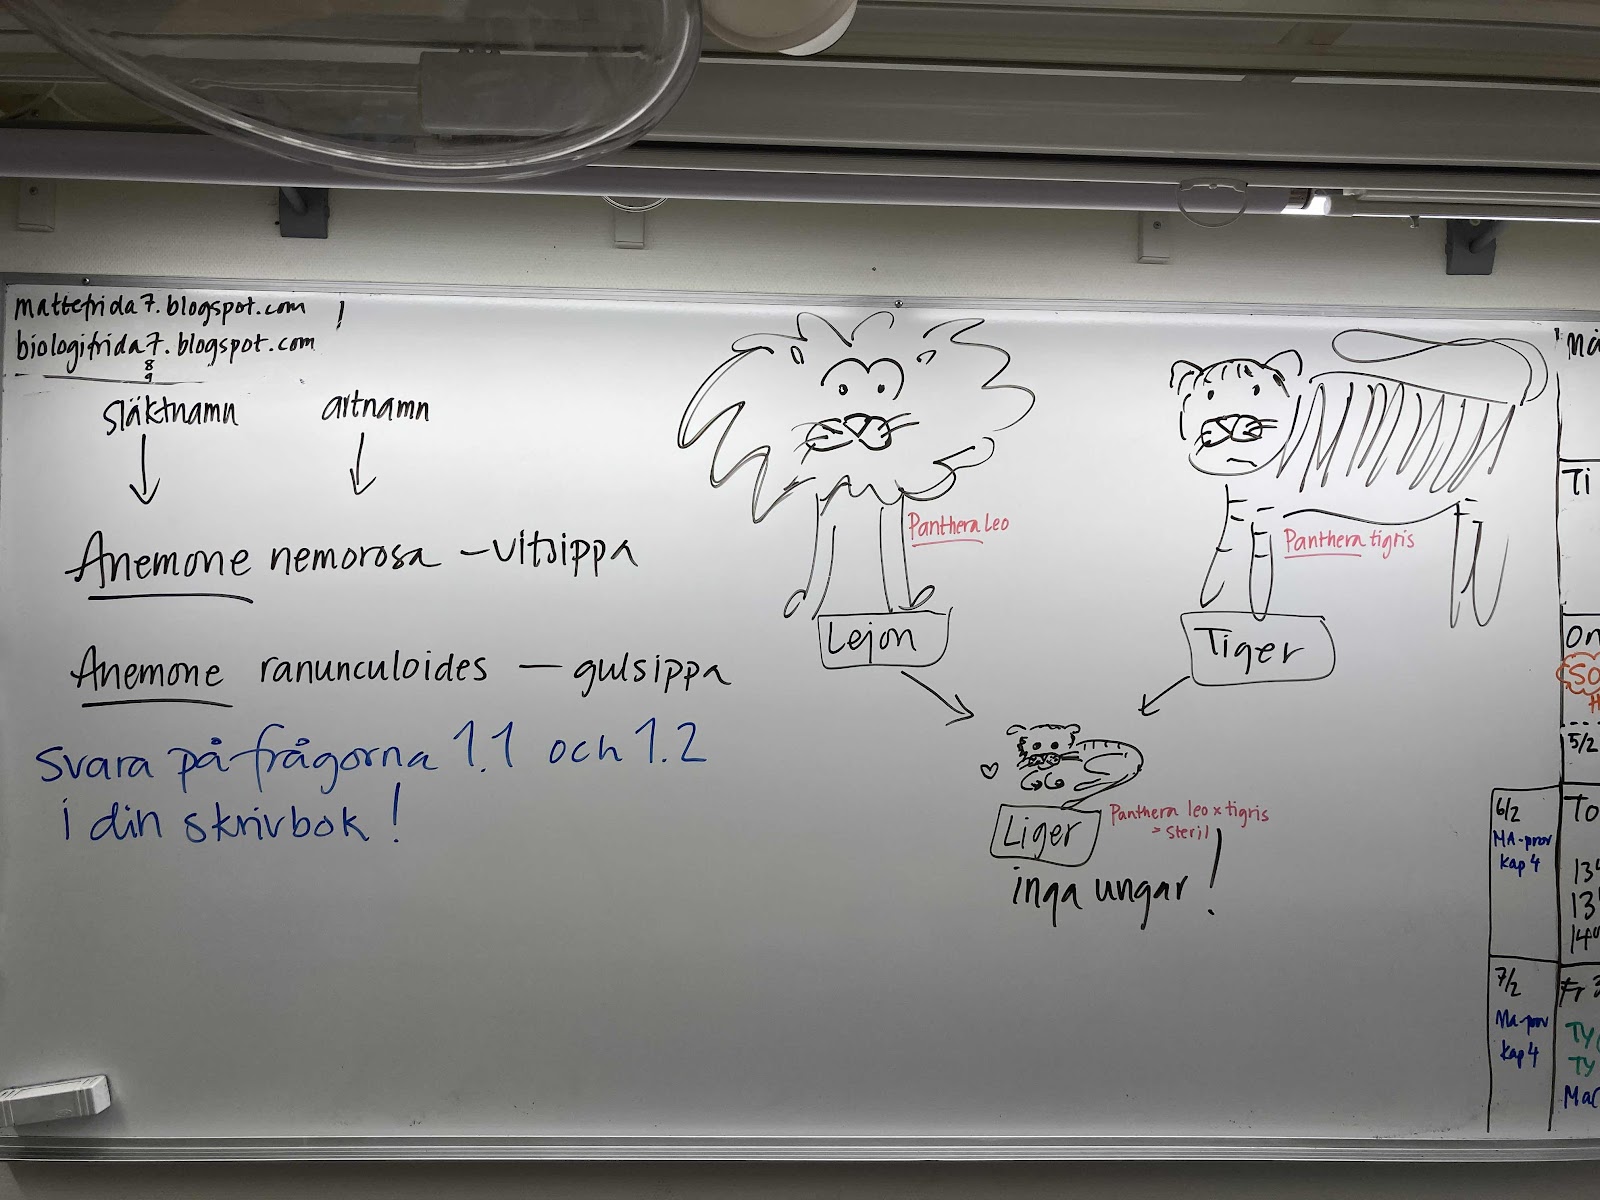 mattefrida7.blogspot.com !
biologifrida7.blogspot.com
8
9
släktnamn artnamn
Anemone nemorosa - vitsippa
Anemone ranunculoides — gulsippa
svara på frågorna 1.1 och 1.2
i din skrivbok!
Panthera Leo
Lejon
Panthera tigris
Tiger
Liger
Panthera leo x tigris
steril
inga ungar!
Ti
5/2
6/2
MA-prov
kap 4
To
7/2
Ma-prov
kap 4
Fr